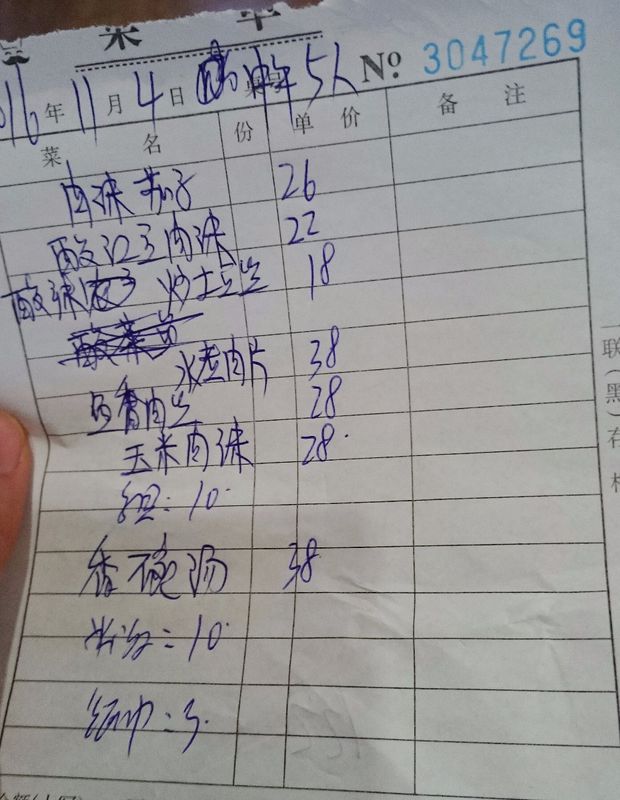 菜 单
2016年11月4日 中午5人 № 3047269
菜 名 份 单 价 备 注
肉沫茄子 26
酸江豆肉沫 22
酸辣 炒土豆丝 18
酸菜
水煮肉片 38
鱼香肉丝 28
玉米肉沫 28.
10.
香碗汤 38
米饭:10.
纸巾:3.
联(黑)存根